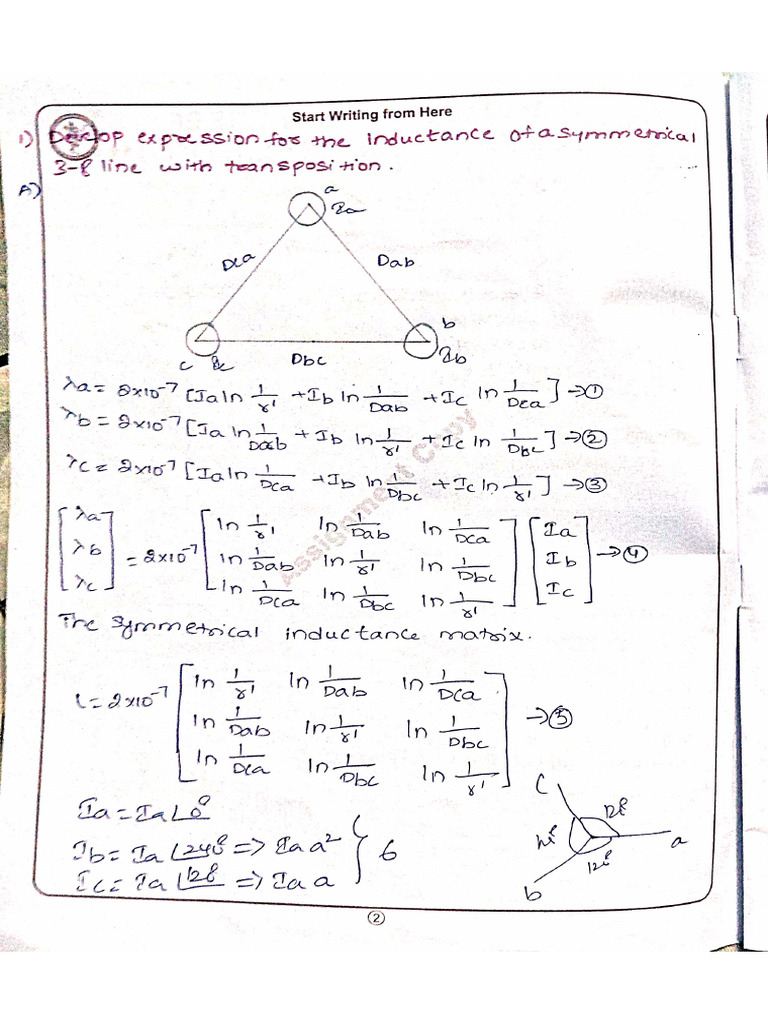 Start Writing from Here
1) Develop expression for the inductance of a symmetrical
3-ϕ line with transposition.
A)
a
Ia
Dca
Dab
b
c
Dbc
Ib
λa = 2×10⁻⁷ [Ia ln 1/r' + Ib ln 1/Dab + Ic ln 1/Dca] → ①
λb = 2×10⁻⁷ [Ia ln 1/Dab + Ib ln 1/r' + Ic ln 1/Dbc] → ②
λc = 2×10⁻⁷ [Ia ln 1/Dca + Ib ln 1/Dbc + Ic ln 1/r'] → ③
Assignment Copy
[λa] [ln 1/r' ln 1/Dab ln 1/Dca] [Ia]
[λb] = 2×10⁻⁷ [ln 1/Dab ln 1/r' ln 1/Dbc] [Ib] → ④
[λc] [ln 1/Dca ln 1/Dbc ln 1/r'] [Ic]
The symmetrical inductance matrix.
[ln 1/r' ln 1/Dab ln 1/Dca]
L = 2×10⁻⁷ [ln 1/Dab ln 1/r' ln 1/Dbc] → ⑤
[ln 1/Dca ln 1/Dbc ln 1/r']
Ia = Ia∠0°
Ib = Ia∠240° => Ia a²
Ic = Ia∠120° => Ia a
} 6
C
120°
120°
a
120°
b
2